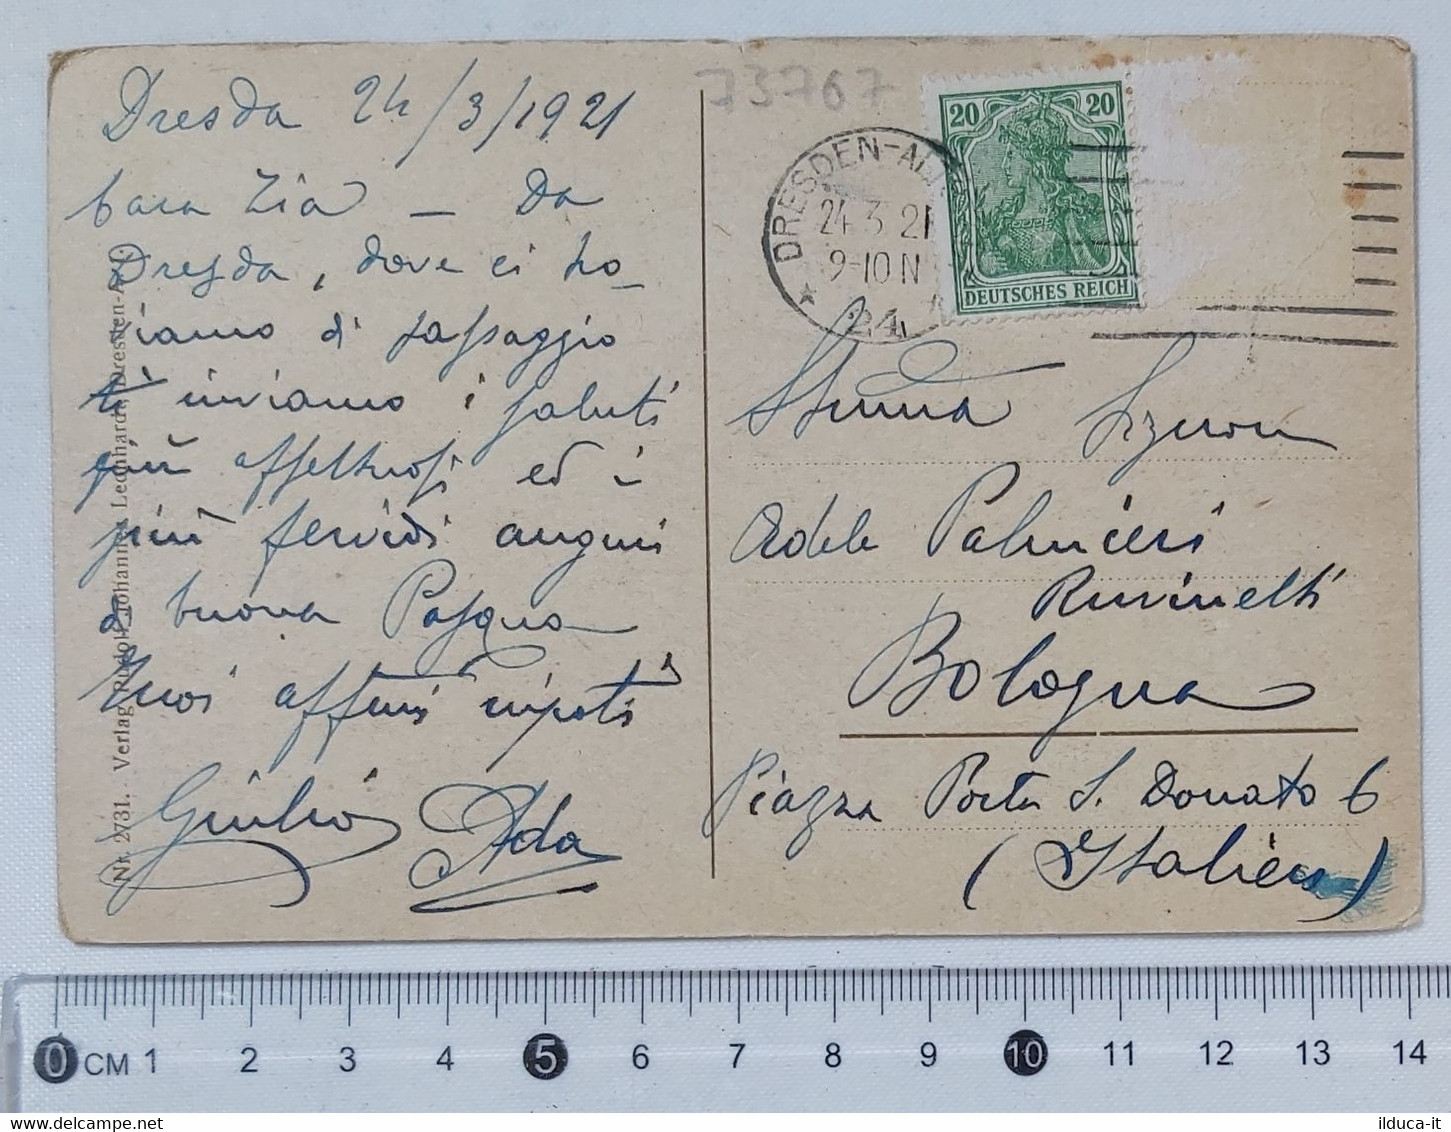 73767
Dresda 24/3/1921
Cara Zia - Da
Dresda, dove ci tro-
viamo di passaggio
ti inviamo i saluti
più affettuosi ed i
più fervidi auguri
di buona Pasqua
Tuoi affmi nipoti
Giulio Ada
Nr. 2731. Verlag Rudolf Johannes Leonhardt, Dresden-A.
DRESDEN-ALT
24.3.21
9-10 N
24
20 20
DEUTSCHES REICH
Adele Palmieri
Ruvinetti
Bologna
Piazza Porta S. Donato 6
(Italien)
0 CM 1 2 3 4 5 6 7 8 9 10 11 12 13 14
delcampe.net
ilduca-it